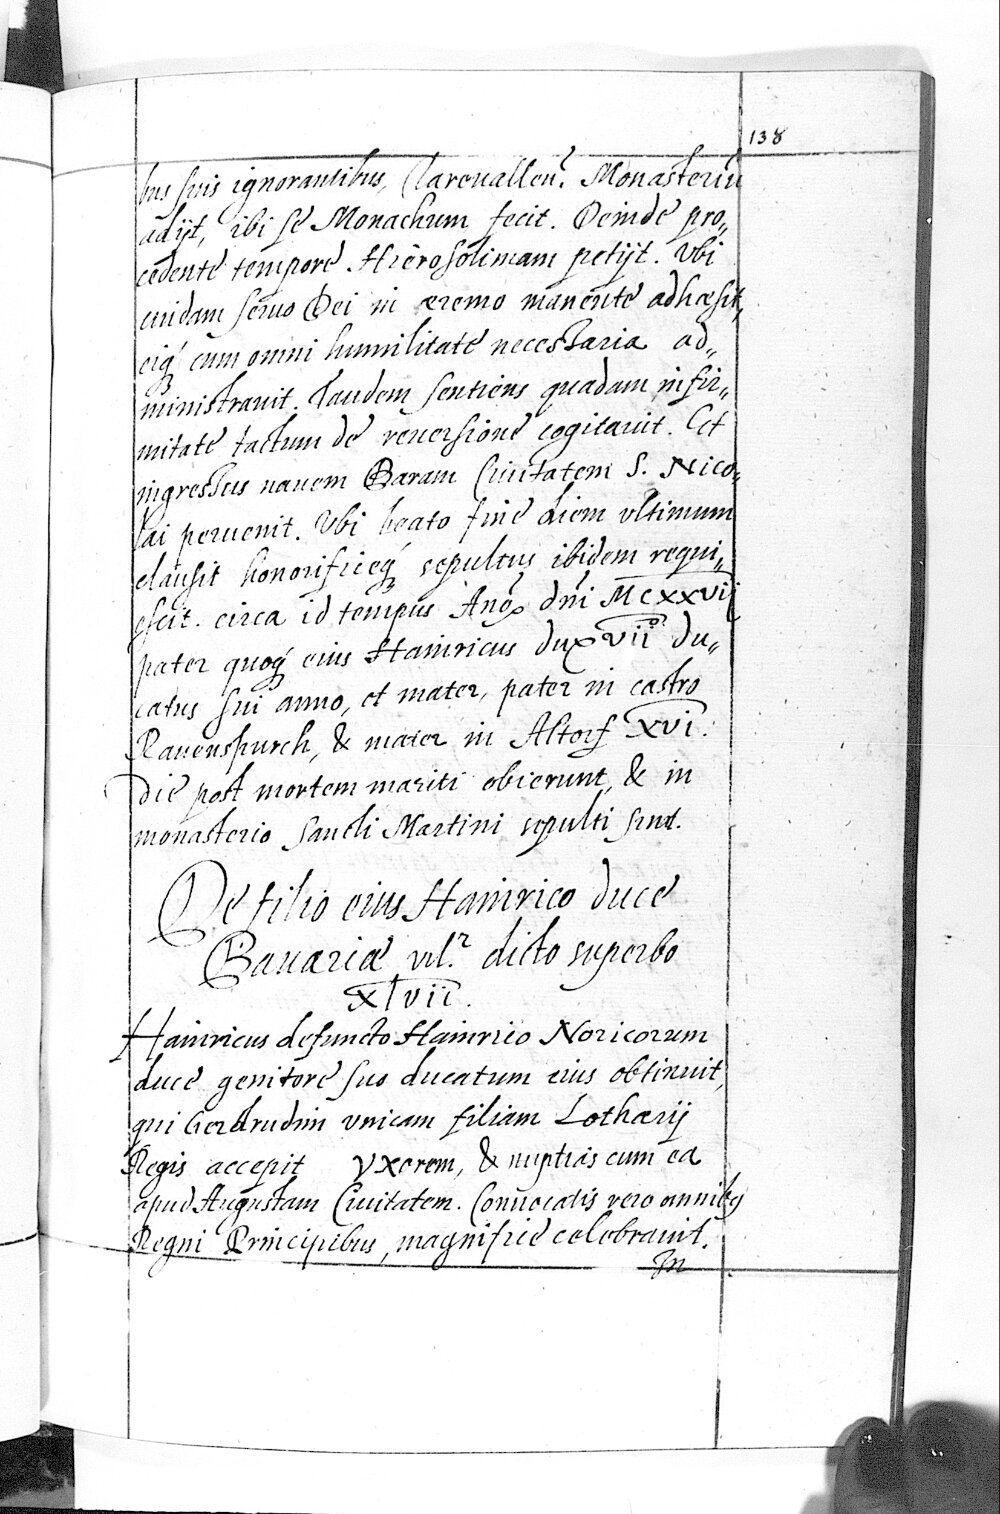 138
bus suis ignorantibus, Clareuallen̄. Monasteriū
adijt, ibi se Monachum fecit. Deinde pro„
cedente tempore Hierosolimam petijt. Vbi
cuidam seruo Dei in æremo manente adhæsit,
eiq́ cum omni humilitate necessaria ad„
ministrauit. Tandem sentiens quadam infir„
mitate tactum de reuersione cogitauit. Et
ingressus nauem Baram Ciuitatem S. Nico„
lai peruenit. Vbi beato fine diem vltimum
clausit honorificeq́ sepultus ibidem requi„
escit. circa id tempus Año dñi MCXXVII
pater quoq́ eius Hainricus dux VIIº du„
catus sui anno, et mater, pater in castro
Rauenspurch, & mater in Altorf XVI.
die post mortem mariti obierunt, & in
monasterio Sancti Martini sepulti sunt.
De filio eius Hainrico duce
Bauariæ vel.r dicto superbo
XLVII.
Hainricus defuncto Hainrico Noricorum
duce genitore suo ducatum eius obtinuit,
qui Gerdrudim vnicam filiam Lotharij
Regis accepit vxorem, & nuptias cum ea
apud Augustam Ciuitatem. Conuocatis vero omnibꝰ
Regni Principibus, magnifice celebrauit.
In